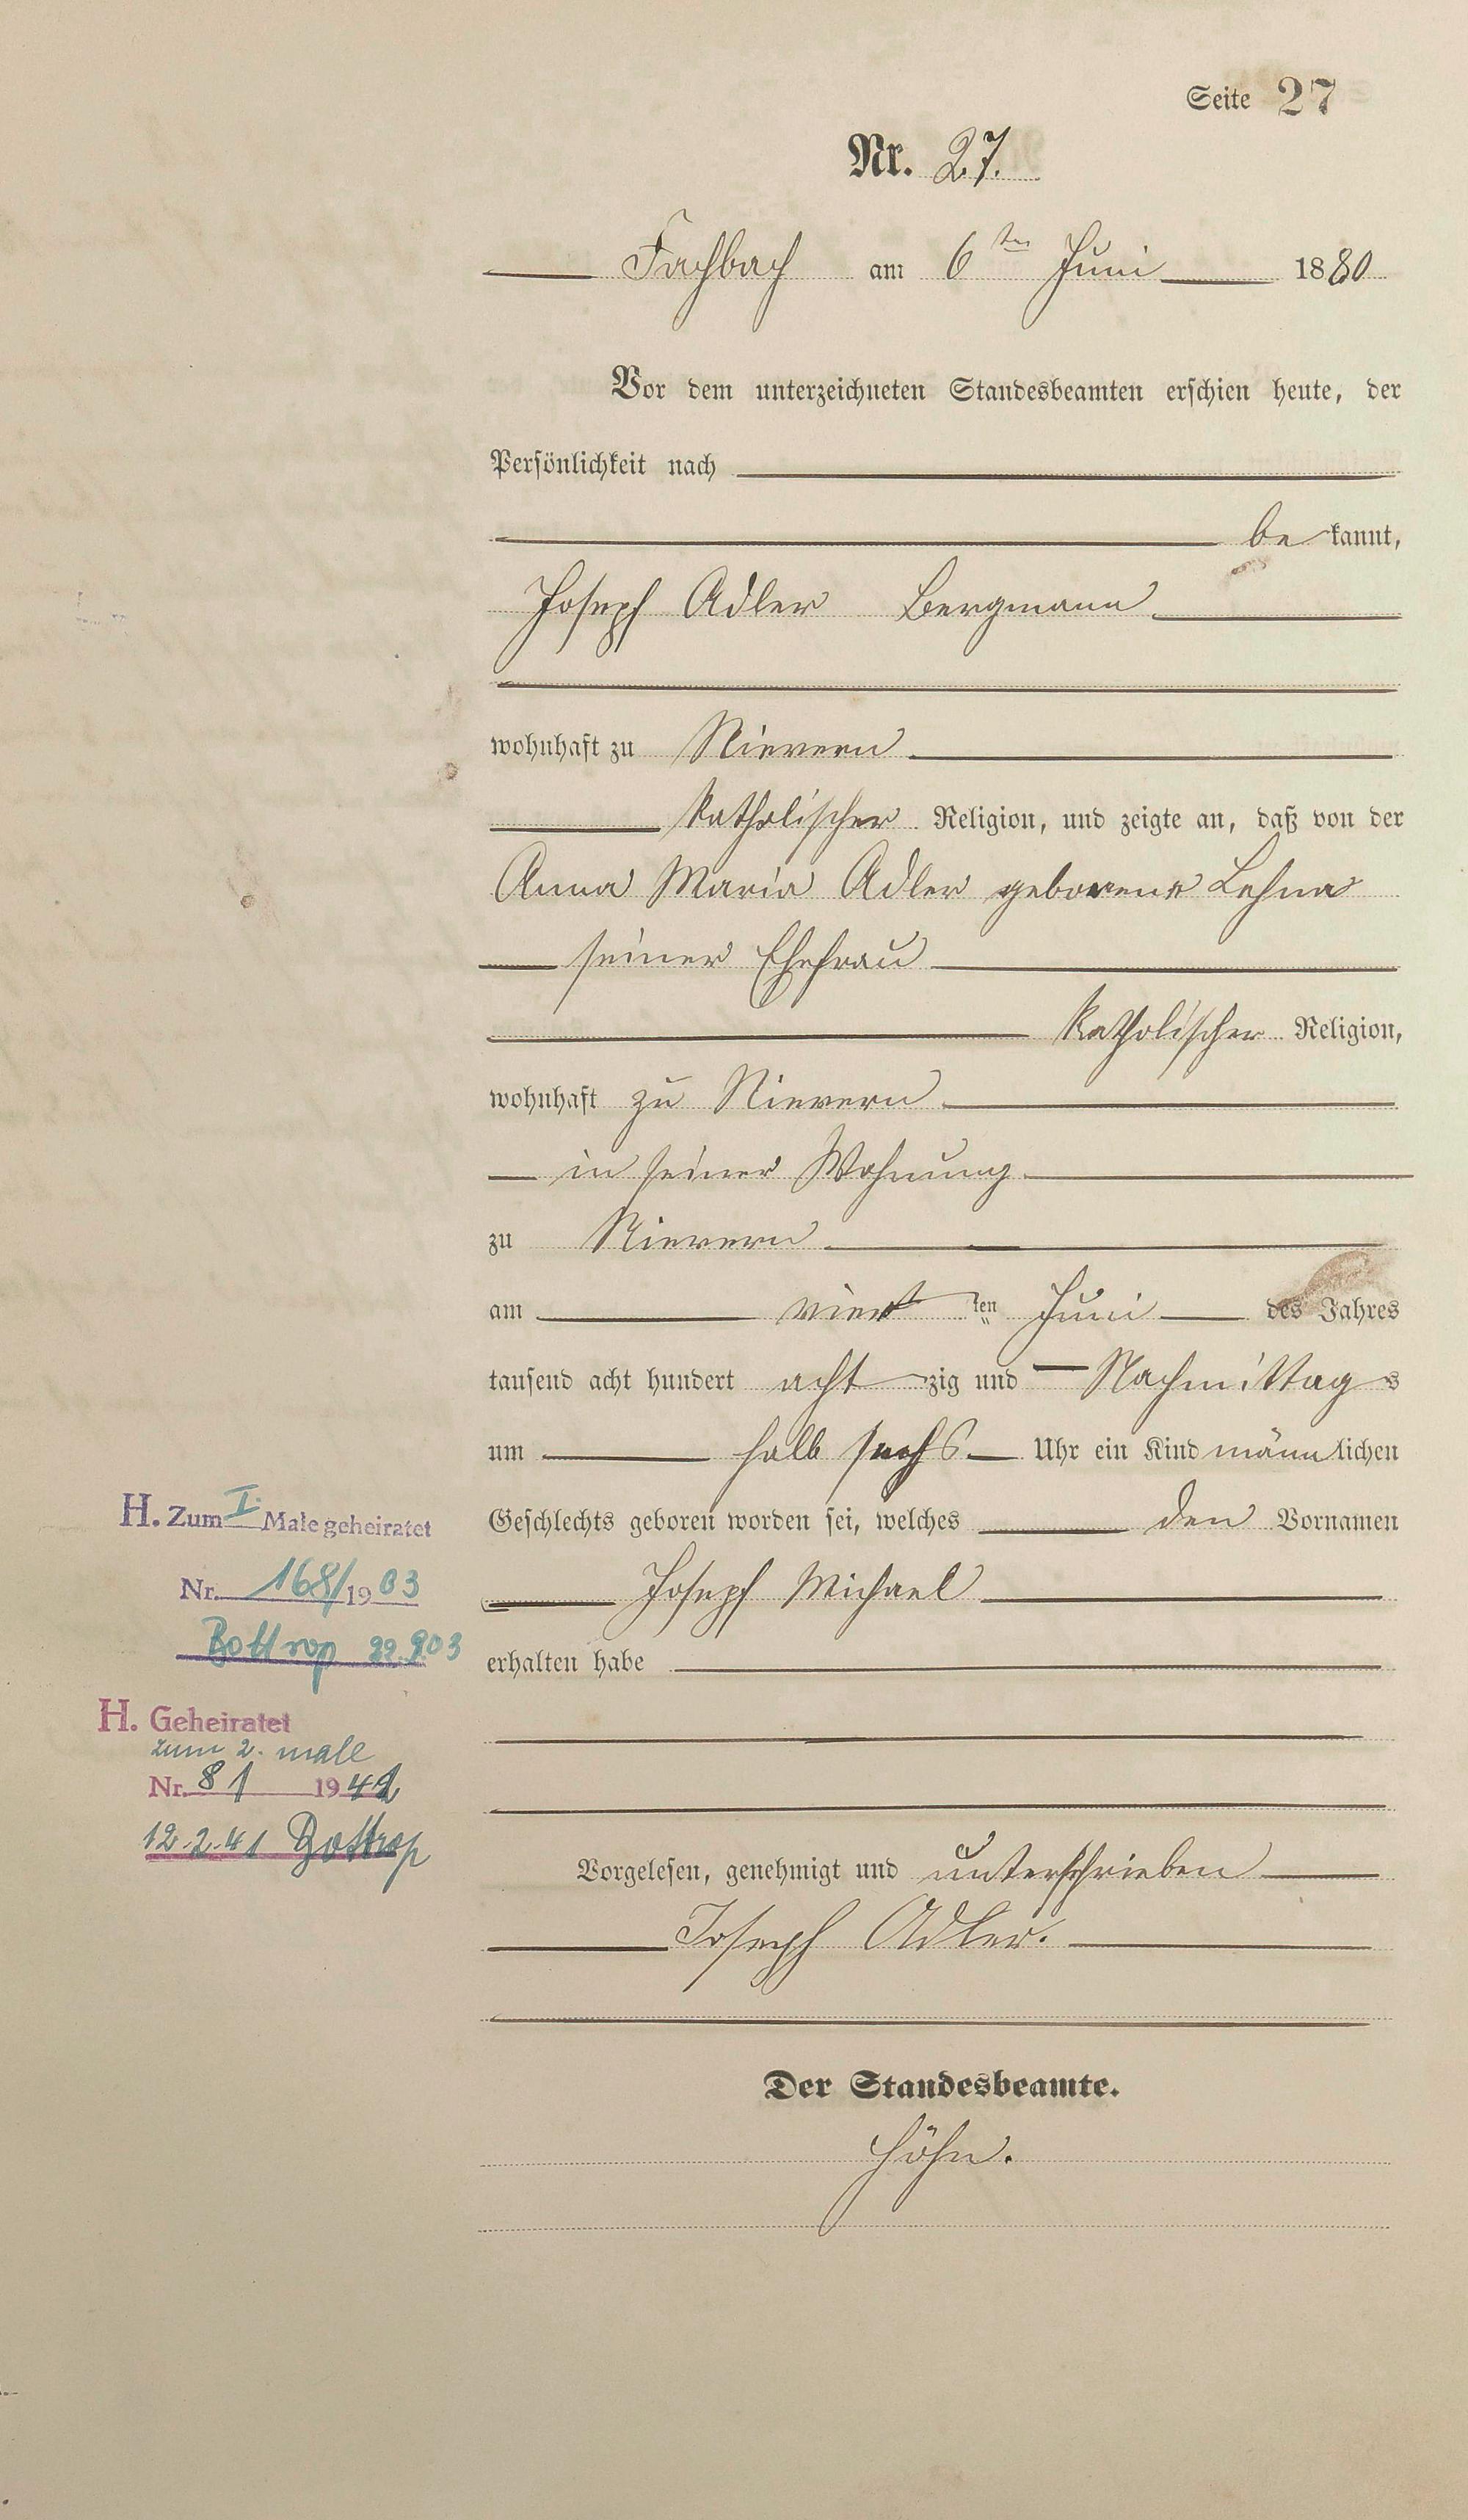 Seite 27
Nr. 27.
Fachbach am 6ten Juni 1880
Vor dem unterzeichneten Standesbeamten erschien heute, der
Persönlichkeit nach
be kannt,
Joseph Adler Bergmann
wohnhaft zu Nievern
katholischer Religion, und zeigte an, daß von der
Anna Maria Adler geborene Lehna
seiner Ehefrau
katholischer Religion,
wohnhaft zu Nievern
in seiner Wohnung
zu Nievern
am viert ten Juni des Jahres
tausend acht hundert acht zig und Nachmittags
um halb sechs Uhr ein Kind männlichen
Geschlechts geboren worden sei, welches den Vornamen
Joseph Michael
erhalten habe
Vorgelesen, genehmigt und unterschrieben
Joseph Adler.
Der Standesbeamte.
Höhn.
H. Zum I. Male geheiratet
Nr. 168/1903
Bottrop 22.9.03
H. Geheiratet
zum 2. male
Nr. 81 1941
12.2.41 Bottrop